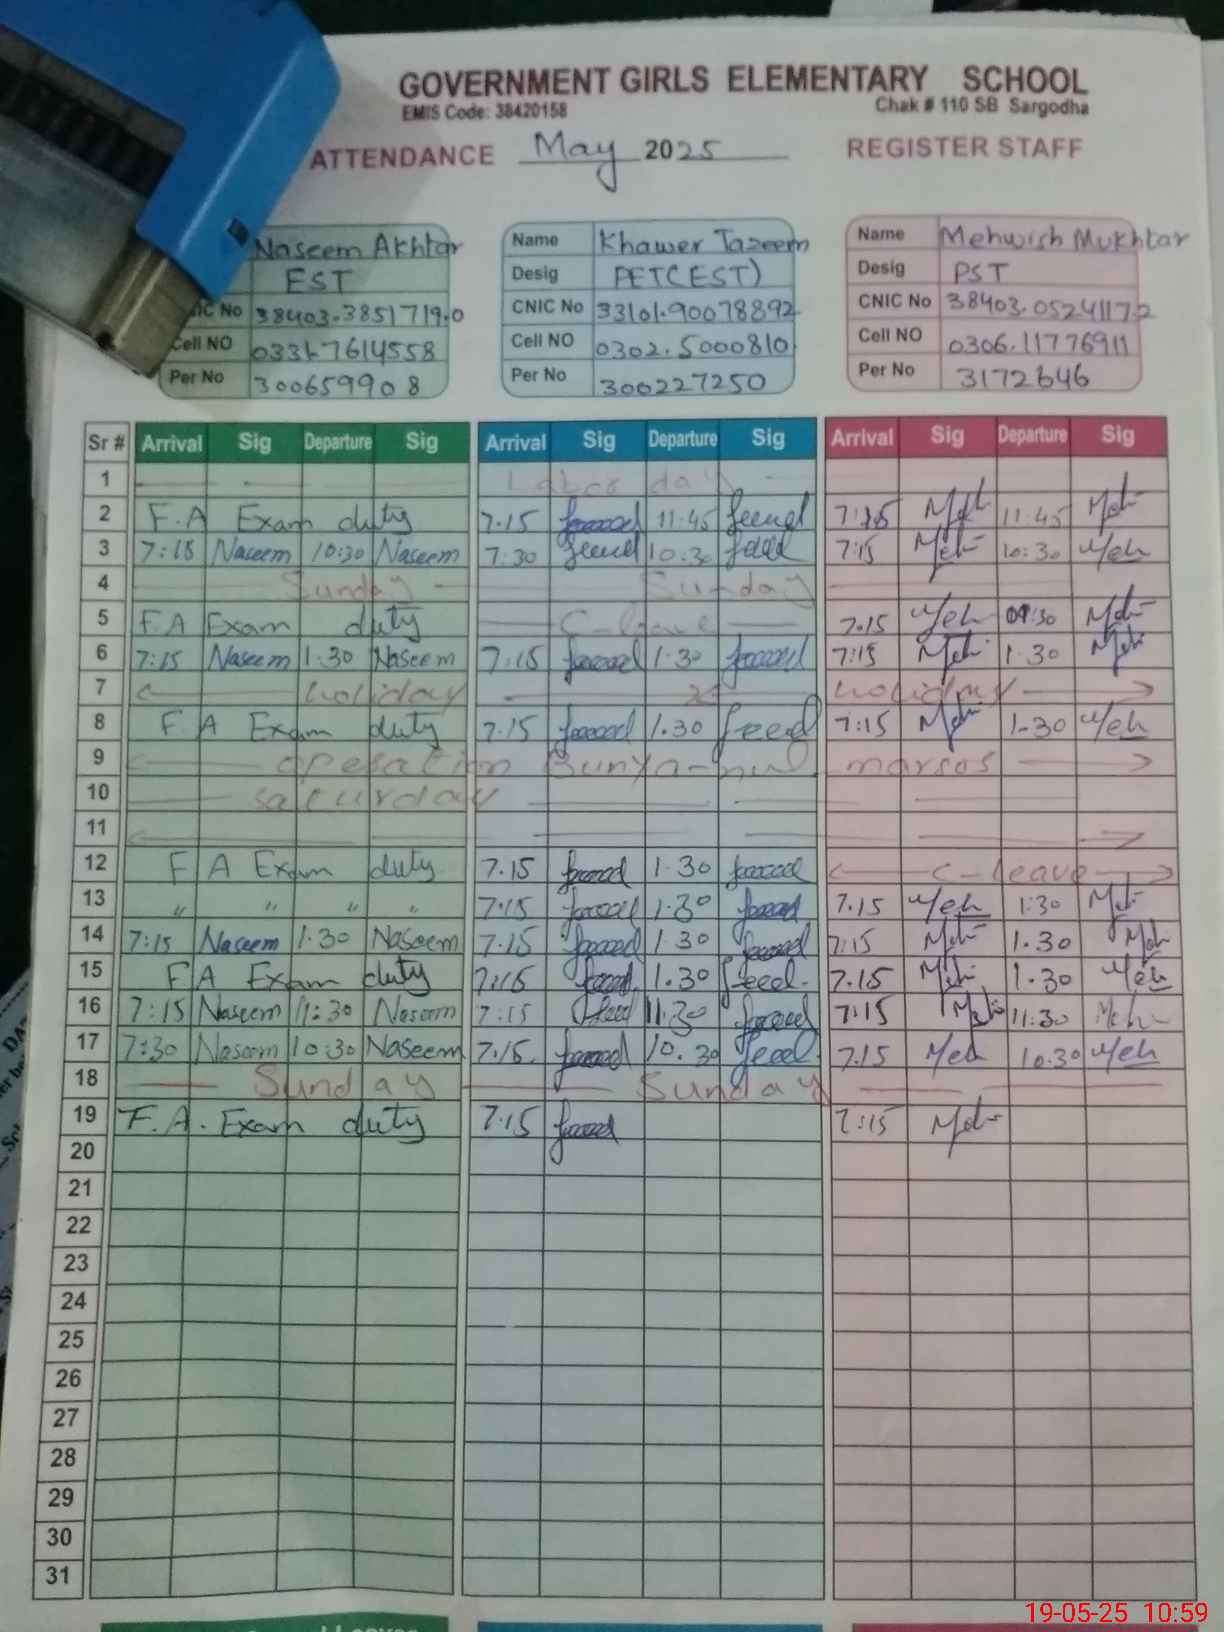 GOVERNMENT GIRLS ELEMENTARY SCHOOL
EMIS Code: 38420158 Chak # 110 SB Sargodha
ATTENDANCE May 2025 REGISTER STAFF
Naseem Akhtar Name Khawer Tazeem Name Mehwish Mukhtar
EST Desig PET(EST) Desig PST
CNIC No 38403.3851719.0 CNIC No 33101.90078892 CNIC No 38403.05241172
Cell NO 0331.7614558 Cell NO 0302.5000810 Cell NO 0306.11776911
Per No 300659908 Per No 300227250 Per No 3172646
Sr # Arrival Sig Departure Sig Arrival Sig Departure Sig Arrival Sig Departure Sig
1 Labor day
2 F.A Exam duty 7.15 11:45 7:15 Meh 11:45 Meh
3 7:15 Naseem 10:30 Naseem 7:30 10:30 7:15 Meh 10:30 Meh
4 Sunday Sunday
5 F.A Exam duty C-leave 7.15 Meh 01:30 Meh
6 7:15 Naseem 1:30 Naseem 7:15 1.30 7:15 Meh 1.30 Meh
7 holiday holiday
8 F A Exam duty 7.15 1.30 7:15 Meh 1-30 Meh
9 operation Bunya-nul marsos
10 saturday
11
12 F A Exam duty 7.15 1.30 C-leave
13 " " " " 7.15 1.30 7.15 Meh 1:30 Meh
14 7:15 Naseem 1.30 Naseem 7.15 1.30 7:15 Meh 1.30 Meh
15 F A Exam duty 7:15 1.30 7.15 Meh 1.30 Meh
16 7:15 Naseem 11:30 Naseem 7:15 11.30 7:15 Meh 11:30 Meh
17 7:30 Naseem 10:30 Naseem 7.15. 10.30 7.15 Meh 10:30 Meh
18 Sunday Sunday
19 F.A. Exam duty 7.15 7:15 Meh
20
21
22
23
24
25
26
27
28
29
30
31
19-05-25 10:59